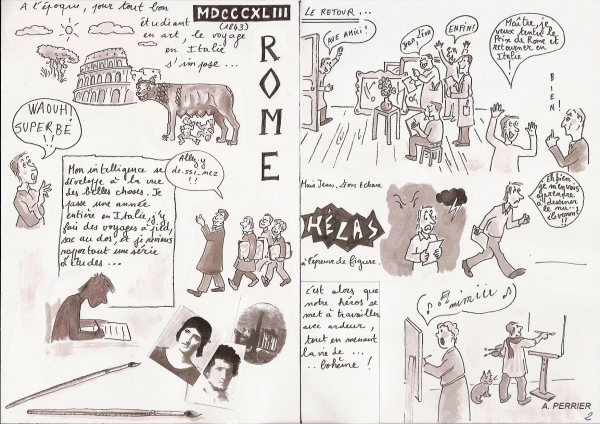 A l'époque, pour tout bon
étudiant
en art, le voyage
en Italie
s'impose...
MDCCCXLIII
(1843)
ROME
WAOUH!
SUPERBE
!!
Mon intelligence se
développe à la vue
des belles choses. Je
passe une année
entière en Italie, j'y
fais des voyages à pied,
sac au dos, et je reviens
rapportant une série
d'études...
Allez y
de-ssi-nez
!!
LE RETOUR...
AVE AMICI!
Jean, Léon
ENFIN!
Maître, je
veux tenter le
Prix de Rome et
retourner en
Italie
!
BIEN!
Mais Jean, Léon Echoue
HÉLAS
à l'épreuve de figure.
Eh bien
je m'en vais
apprendre
à dessiner
le nu..
éloverom!!
c'est alors que
notre héros se
met à travailler
avec ardeur,
tout en menant
la vie de...
..bohème!
Mimiiii
A. PERRIER
2